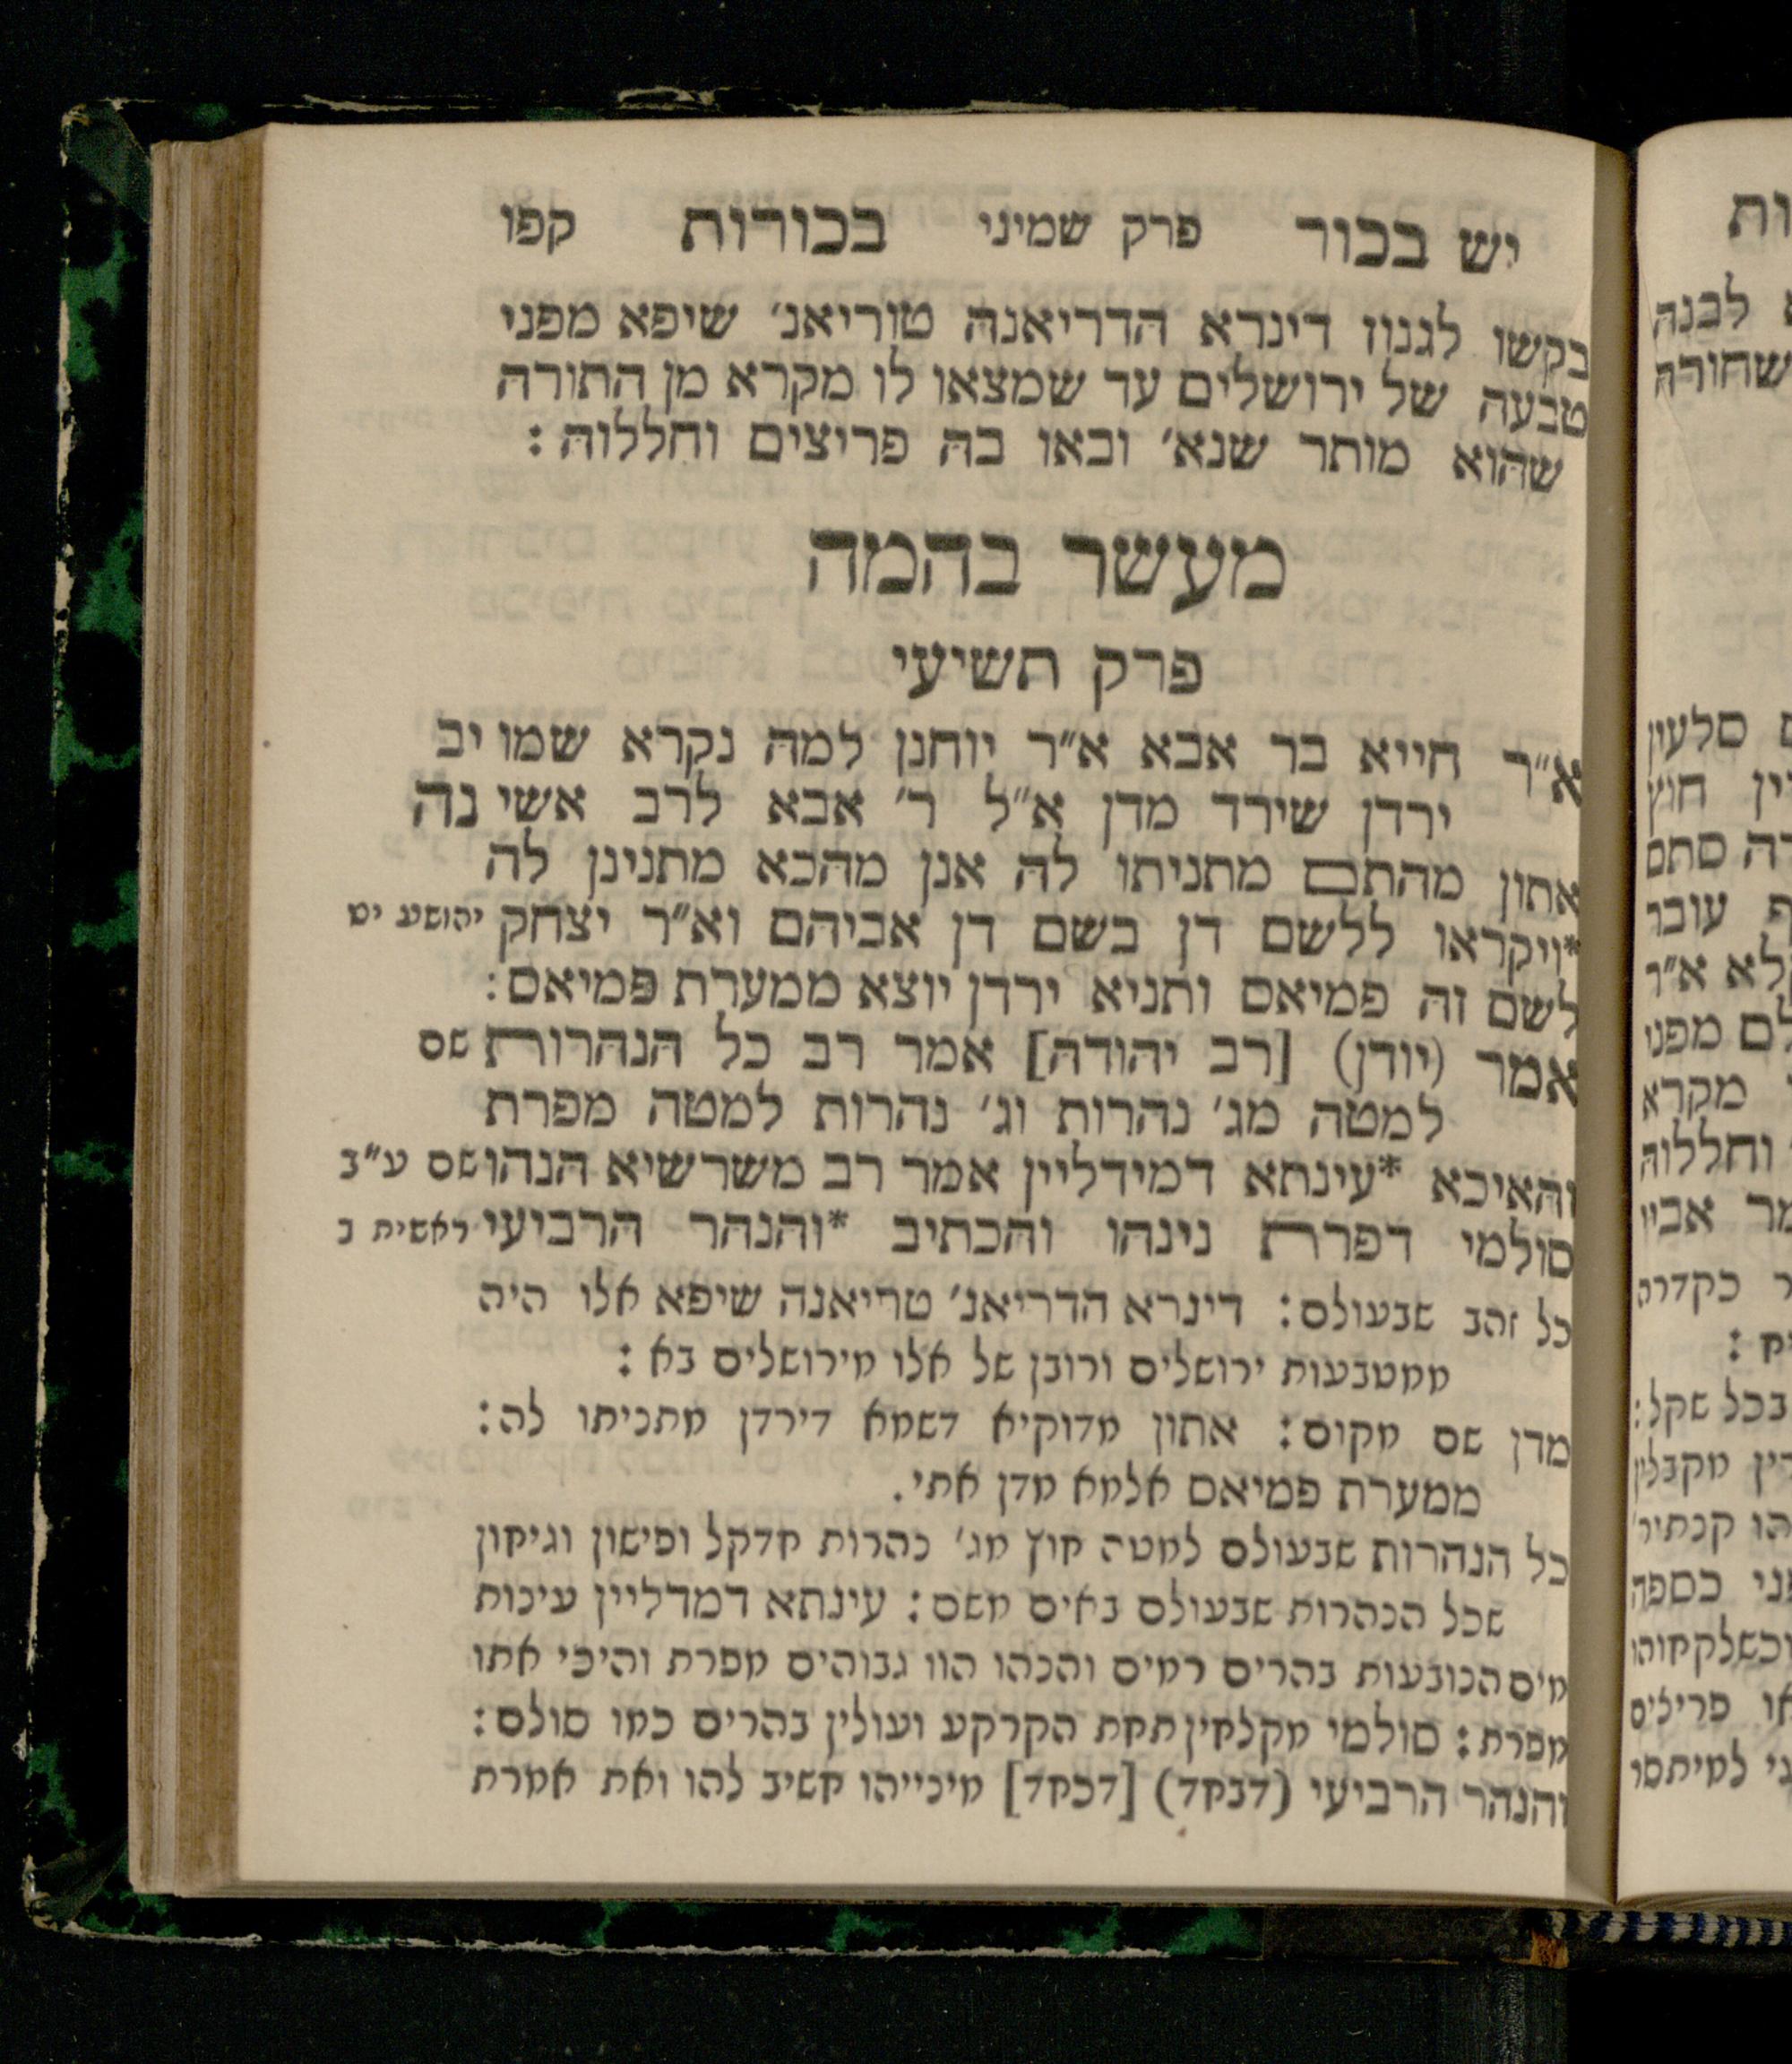 יש בכור פרק שמיני בכורות קפו
בקשו לגנוז דינרא הדריאנה טוריאנ׳ שיפא מפני
טבעה של ירושלים עד שמצאו לו מקרא מן התורה
שהוא מותר שנא׳ ובאו בה פריצים וחללוה :
מעשר בהמה
פרק תשיעי
א״ר חייא בר אבא א״ר יוחנן למה נקרא שמו יב
ירדן שירד מדן א״ל ר׳ אבא לרב אשי נה
אתון מהתם מתניתו לה אנן מהכא מתנינן לה
*ויקראו ללשם דן בשם דן אביהם וא״ר יצחק יהושע יט
לשם זה פמיאס ותניא ירדן יוצא ממערת פמיאס:
אמר (יודן) [רב יהודה] אמר רב כל הנהרות שם
למטה מג׳ נהרות וג׳ נהרות למטה מפרת
והאיכא *עינתא דמידליין אמר רב משרשיא הנהו שם ע״ב
סולמי דפרת נינהו והכתיב *והנהר הרביעי ראשית ב
כל זהב שבעולם: דינרא הדריאנ׳ טריאנה שיפא אלו היה
ממטבעות ירושלים ורובן של אלו מירושלים בא :
מדן שם מקום: אתון מדוקיא דשמא דירדן מתניתו לה:
ממערת פמיאס אלמא מדן אתי.
כל הנהרות שבעולם למטה חוץ מג׳ נהרות חדקל ופישון וגיחון
שכל הנהרות שבעולם באים משם: עינתא דמדליין עינות
מים הנובעות בהרים רמים והנהו הוו גבוהים מפרת והיכי אתו
מפרת: סולמי מקלחין תחת הקרקע ועולין בהרים כמו סולם:
והנהר הרביעי (דבחד) [דכחד] מינייהו חשיב להו ואת אמרת